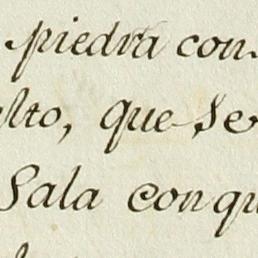 piedra con
lto, que se
Sala con qu